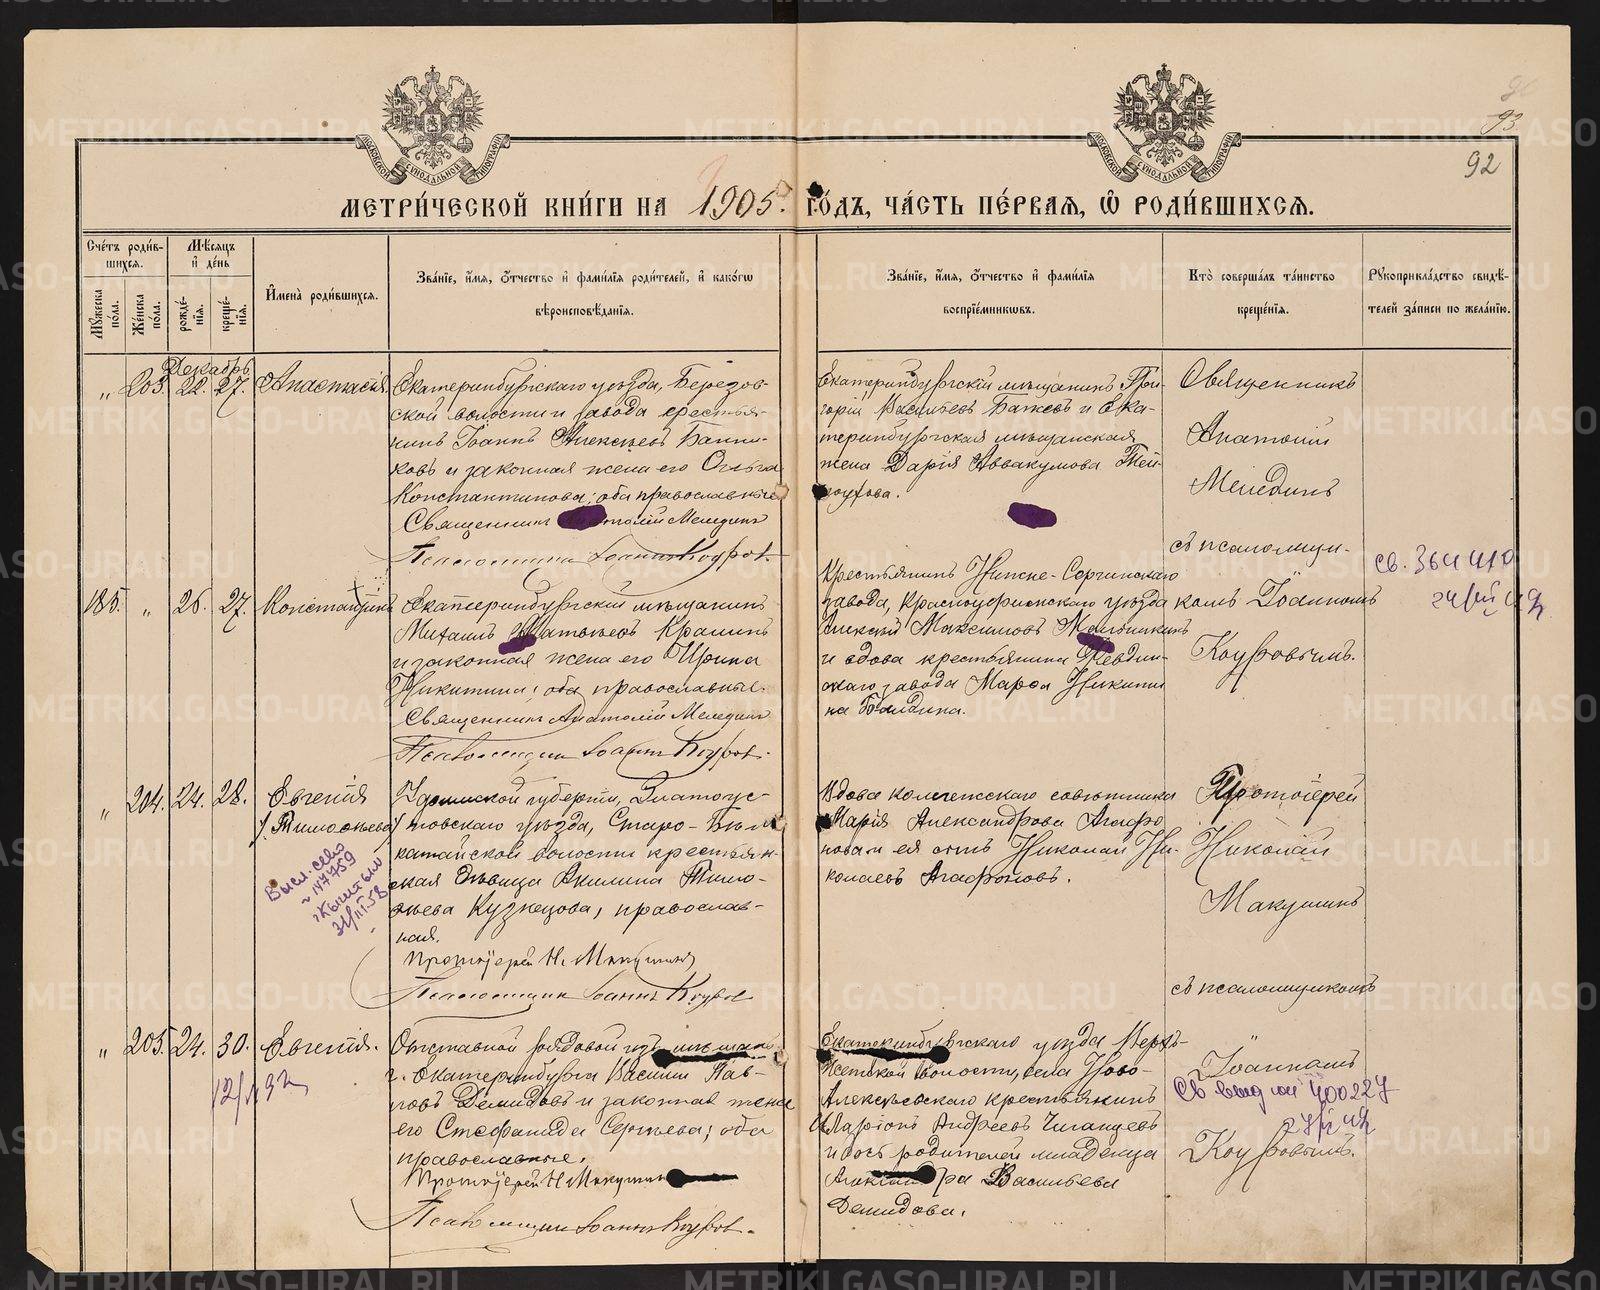 93
92
МОСКОВСКОЙ СѴНОДАЛЬНОЙ ТИПОГРАФІИ
МОСКОВСКОЙ СѴНОДАЛЬНОЙ ТИПОГРАФІИ
МЕТРИ́ЧЕСКОЙ КНИ́ГИ НА 1905 ГО́ДЪ, ЧА́СТЬ ПЕ́РВАЯ, Ѡ РОДИ́ВШИХСЯ.
Сче́тъ роди́в-
шихся.
Мѣ́сяцъ
и де́нь
Мꙋ́жеска
по́ла.
Же́нска
по́ла.
рожде́-
нїя.
креще́-
нїя.
Имена̀ роди́вшихся.
Зва́нїе, и́мя, ѻ́тчество и фами́лїя роди́телей, и како́гѡ
вѣроисповѣ́данїя.
Зва́нїе, и́мя, ѻ́тчество и фами́лїя
воспрїе́мникѡвъ.
Кто̀ соверша́лъ та́инство
креще́нїя.
Рꙋкоприкла́дство свидѣ́-
телей за́писи по жела́нїю.
Декабрь
„ 203. 22. 27. Анастасія
Екатеринбургскаго уѣзда, Березов-
ской волости и завода крестья-
нинъ Іоаннъ Алексѣевъ Банни-
ковъ и законная жена его Ольга
Константинова; оба православные
Священникъ Анатолій Мелединъ
Псаломщикъ Іоаннъ Коуровъ
Екатеринбургскій мѣщанинъ Гри-
горій Васильевъ Бажевъ и Ека-
теринбургская мѣщанская
жена Дарія Аввакумова
Священникъ
Анатолій
Мелединъ
съ псаломщи-
комъ Іоанномъ
Коуровымъ.
185. „ 26. 27. Константинъ
Екатеринбургскій мѣщанинъ
Михаилъ Матвѣевъ Крашинъ
и законная жена его Ирина
Никитина; оба православные.
Священникъ Анатолій Мелединъ
Псаломщикъ Іоаннъ Коуровъ.
Крестьянинъ Нижне-Сергинскаго
завода, Красноуфимскаго уѣзда
Алексѣй Максимовъ
и вдова крестьянина Ревдин-
скаго завода Марѳа Никити-
на Балдина.
св. 364410
„ 204. 24. 28. Евгенія
/Тимоѳеева/
Уфимской губерніи, Златоус-
товскаго уѣзда, Старо-Бѣло-
катайской волости крестьян-
ская дѣвица Акилина Тимо-
ѳеева Кузнецова, православ-
ная.
Протоіерей Н. Макушинъ
Псаломщикъ Іоаннъ Коуровъ
Вдова коллежскаго совѣтника
Марія Александрова Агафо-
нова и ея сынъ Николай Ни-
колаевъ Агафоновъ.
Протоіерей
Николай
Макушинъ
съ псаломщикомъ
Іоанномъ
Коуровымъ.
Высл. св-во
147759
Кыштым
31/III 58
„ 205. 24. 30. Евгенія.
Отставной рядовой изъ мѣщанъ
г. Екатеринбурга Василій Пав-
ловъ Демидовъ и законная жена
его Стефанида Сергѣева; оба
православные.
Протоіерей Н. Макушинъ
Псаломщикъ Іоаннъ Коуровъ.
Екатеринбургскаго уѣзда Верхъ-
Исетской волости, села Ново-
Алексѣевскаго крестьянинъ
Иларіонъ Андреевъ Чиганцевъ
и дочь родителей младенца
Александра Васильева
Демидова.
400227